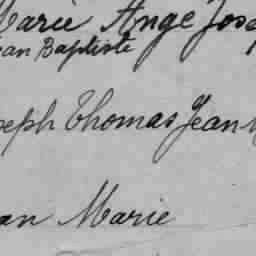 Marie Ange Jose
ean Baptiste
seph Thomas Jean
an Marie